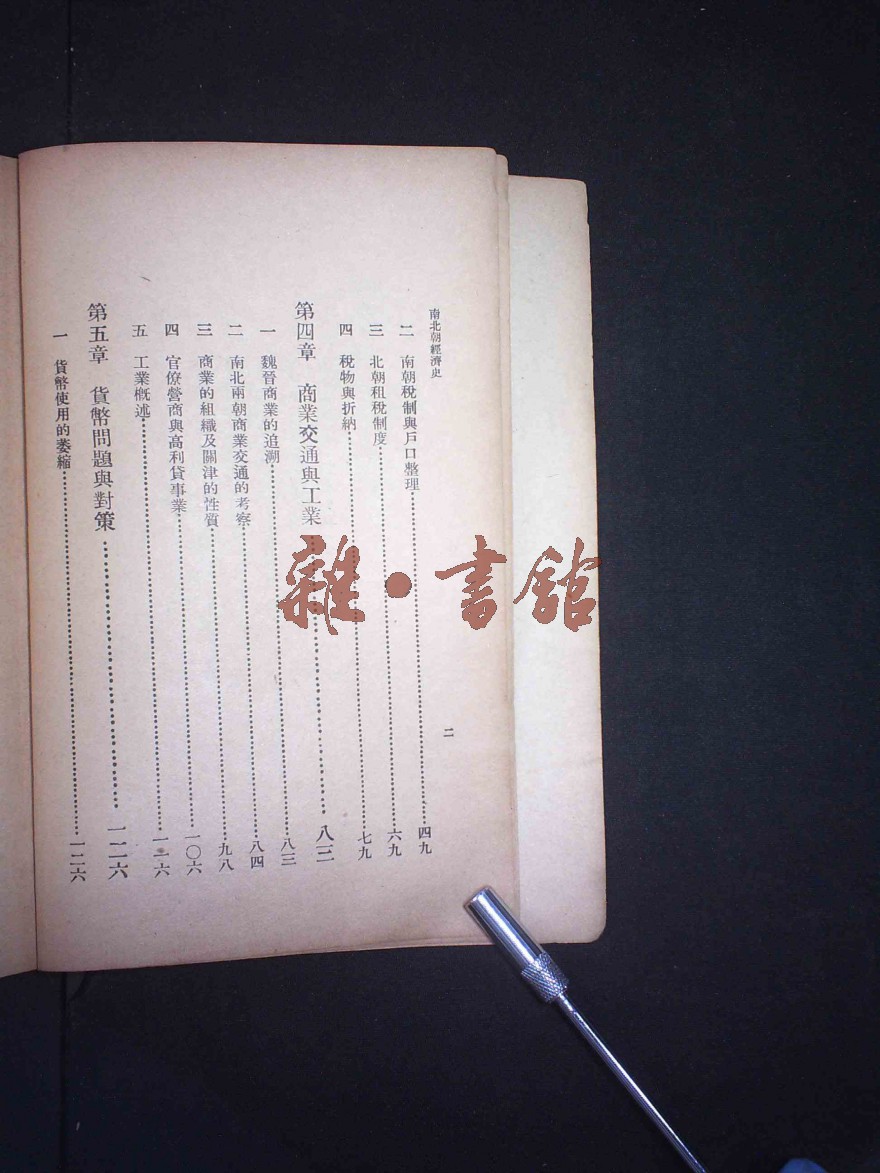 南北朝經濟史
二
二 南朝稅制與戶口整理……四九
三 北朝租稅制度……六九
四 稅物與折納……七九
第四章 商業交通與工業……八三
一 魏晉商業的追溯……八三
二 南北兩朝商業交通的考察……八四
三 商業的組織及關津的性質……九八
四 官僚營商與高利貸事業……一〇六
五 工業概述……一一六
第五章 貨幣問題與對策……一二六
一 貨幣使用的萎縮……一二六
雜·書館